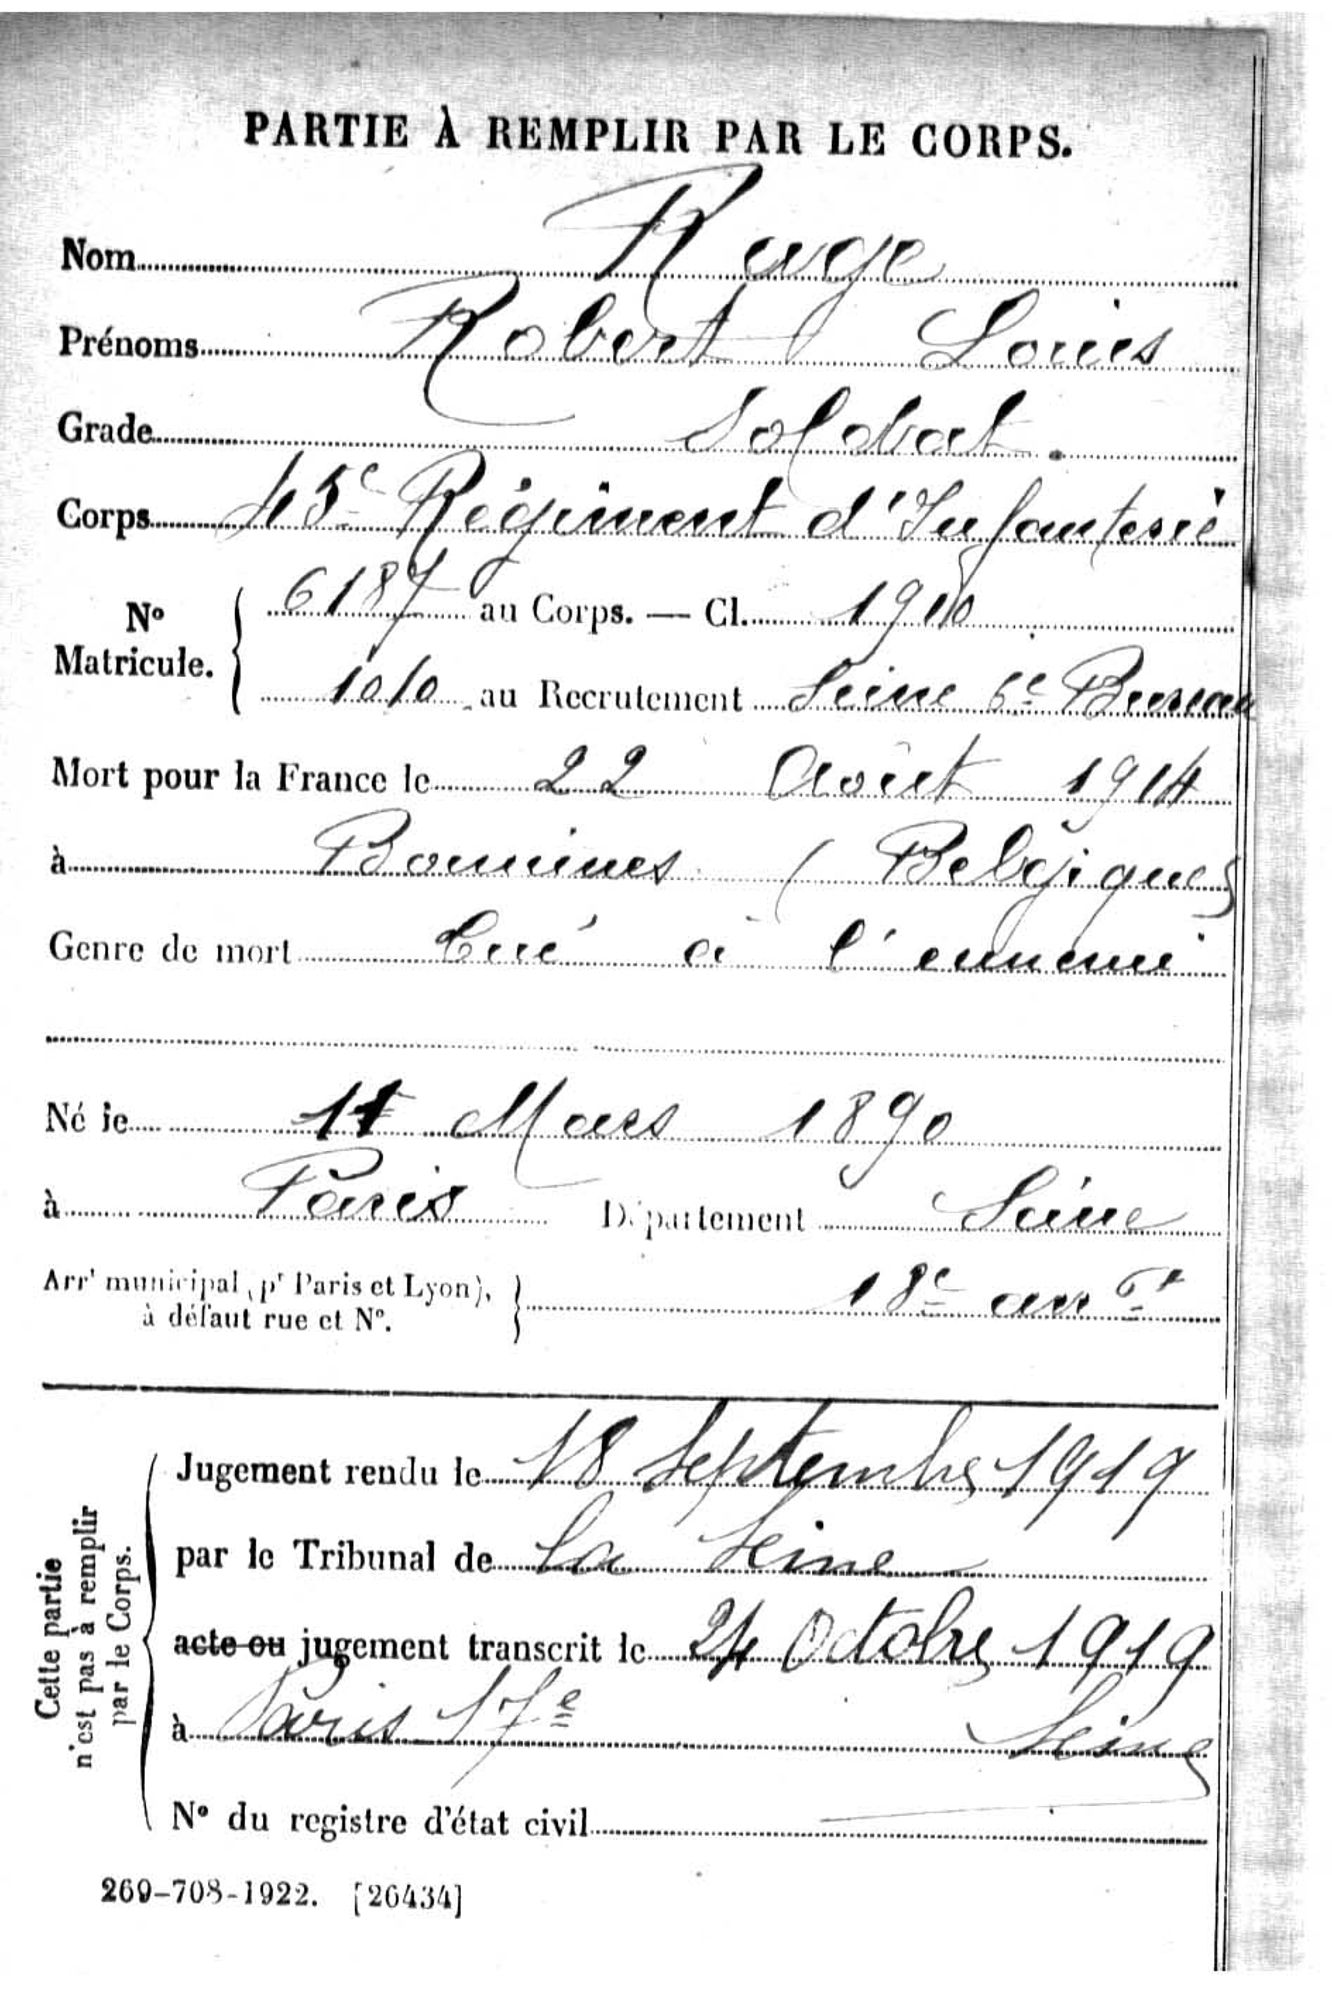 PARTIE À REMPLIR PAR LE CORPS.
Nom Ruge
Prénoms Robert Louis
Grade Soldat.
Corps 45e Régiment d'Infanterie
No Matricule. 6187 au Corps. — Cl. 1910
1010 au Recrutement Seine 6e Bureau
Mort pour la France le 22 Août 1914
à Bomines (Belgique)
Genre de mort Tué à l'ennemi
Né le 11 Mars 1890
à Paris Département Seine
Arrt municipal (pr Paris et Lyon), 18e arrt
à défaut rue et No.
Cette partie
n'est pas à remplir
par le Corps.
Jugement rendu le 18 Septembre 1919
par le Tribunal de la Seine
acte ou jugement transcrit le 24 Octobre 1919
à Paris 17e Seine
No du registre d'état civil
269-708-1922. [26434]